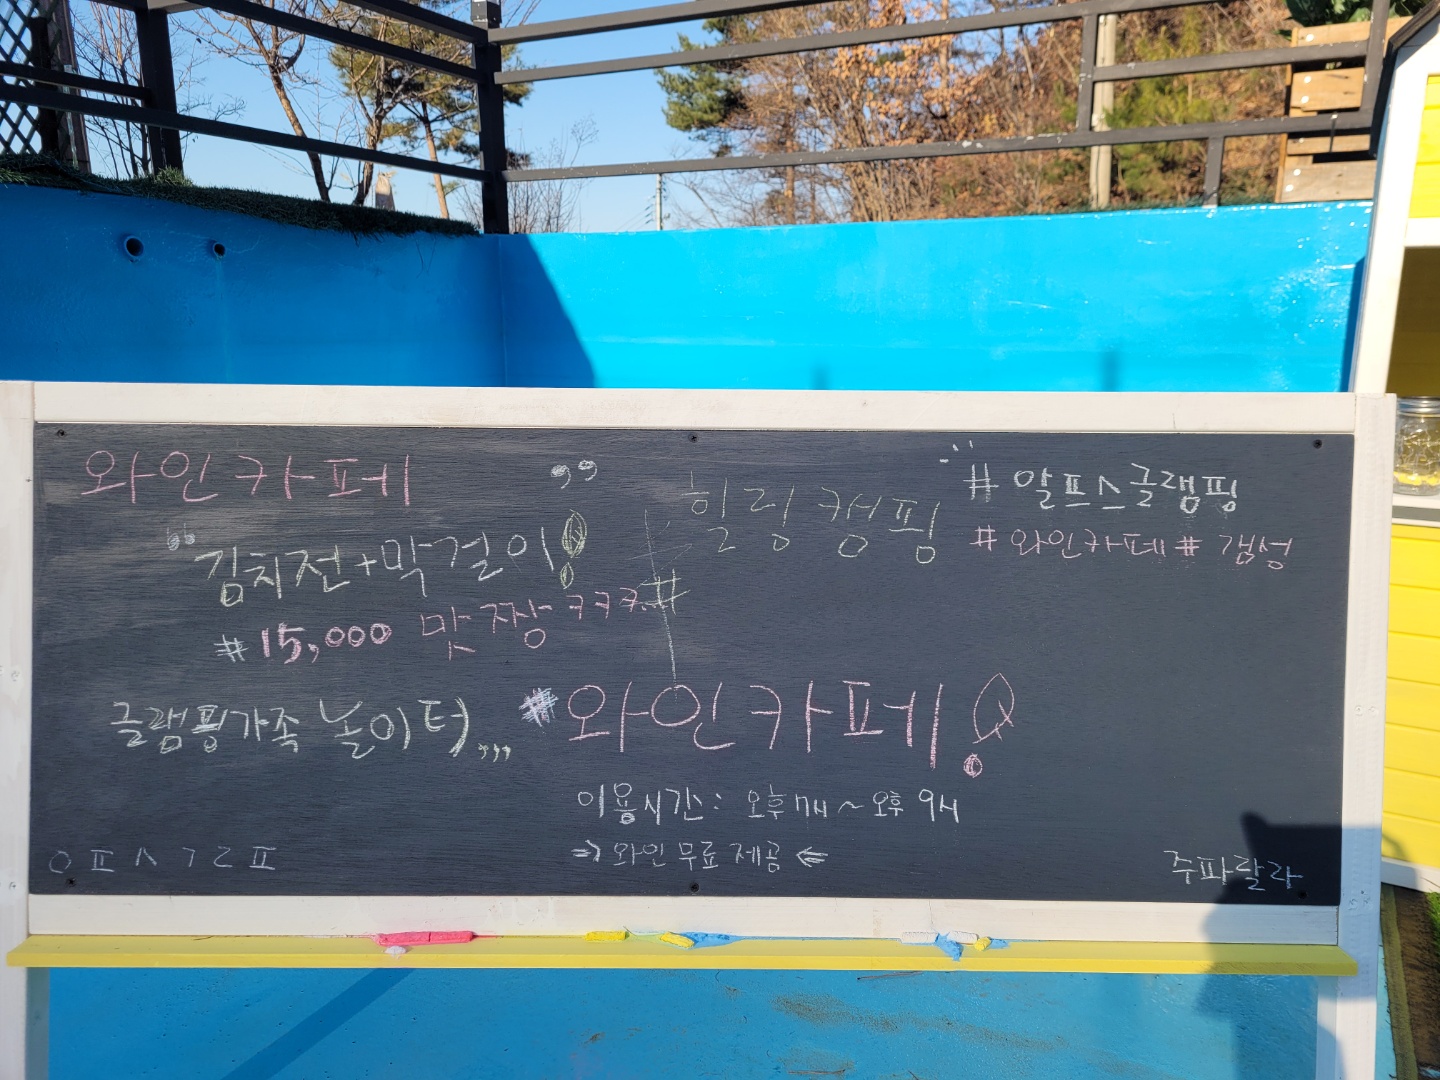 와인카페
"김치전+막걸이!"
#15,000 맛짱 ㅋㅋㅋ #
글램핑가족 놀이터,,,
ㅇㅍㅅㄱㄹㅍ
힐링캠핑
#알프스글램핑
#와인카페 #갬성
#와인카페!
이용시간: 오후 7시 ~ 오후 9시
⇒ 와인 무료 제공 ⇐
주파랄라